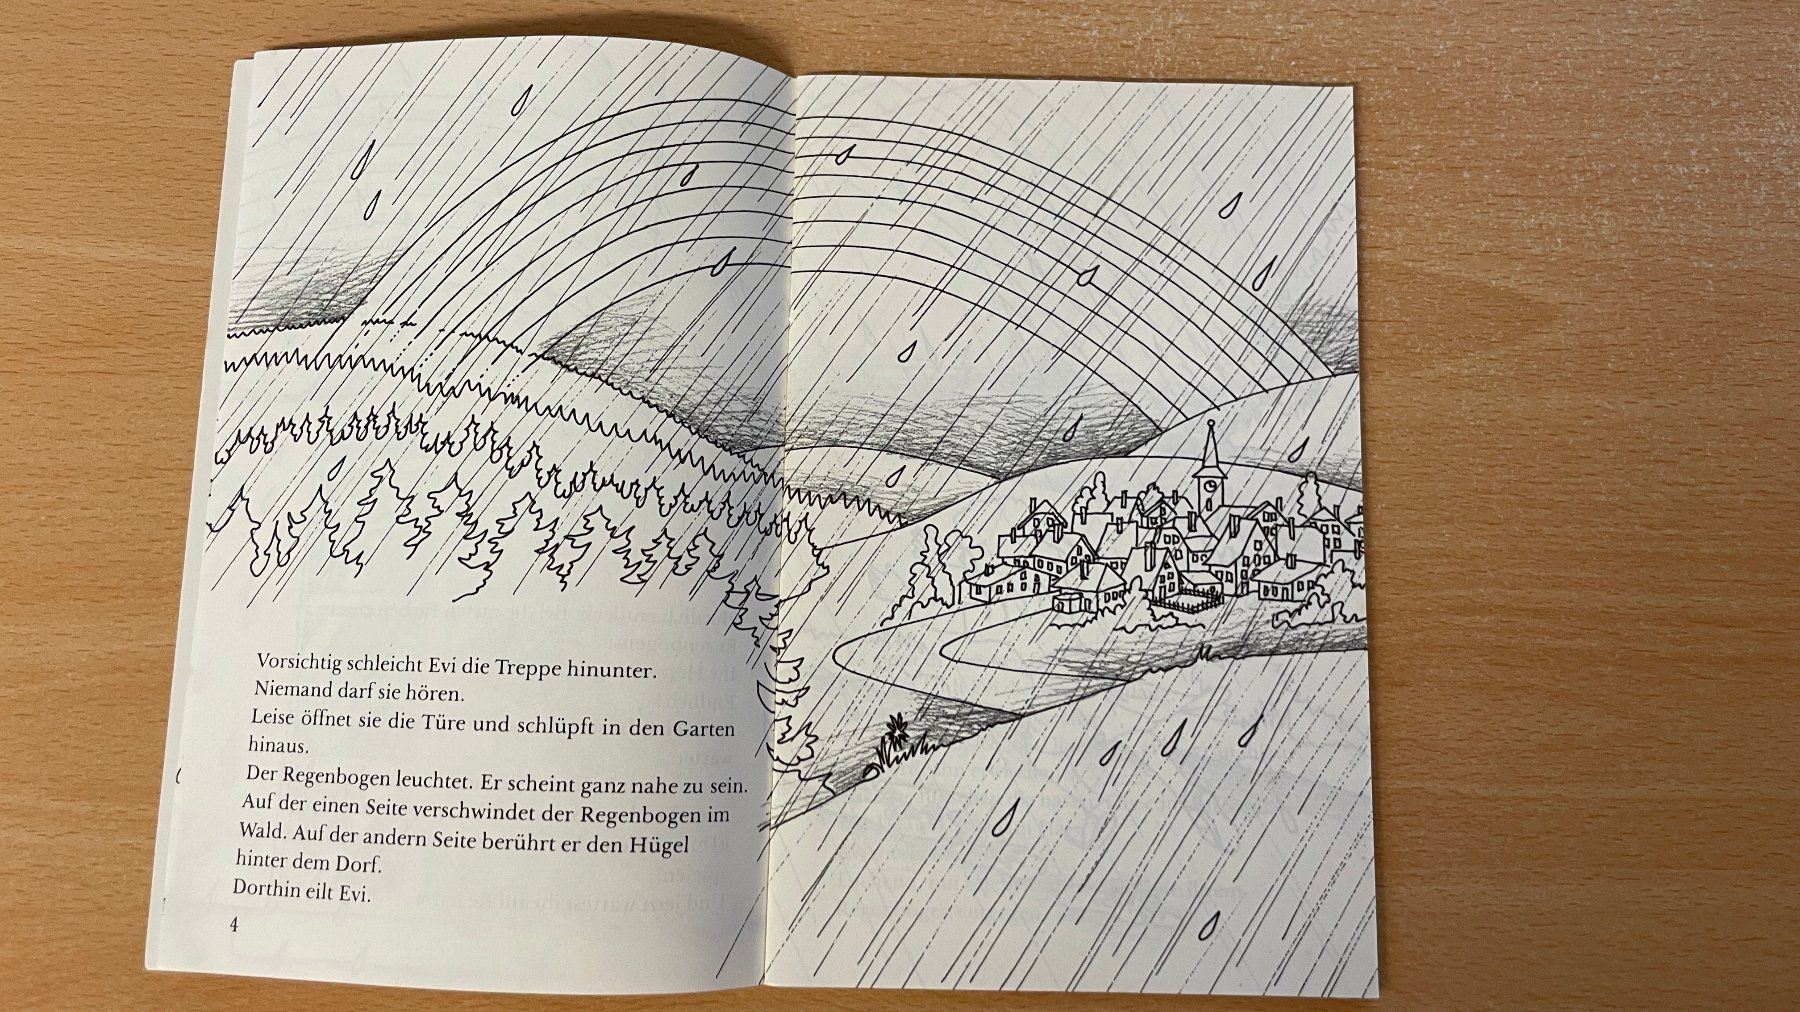 Vorsichtig schleicht Evi die Treppe hinunter.
Niemand darf sie hören.
Leise öffnet sie die Türe und schlüpft in den Garten
hinaus.
Der Regenbogen leuchtet. Er scheint ganz nahe zu sein.
Auf der einen Seite verschwindet der Regenbogen im
Wald. Auf der andern Seite berührt er den Hügel
hinter dem Dorf.
Dorthin eilt Evi.
4